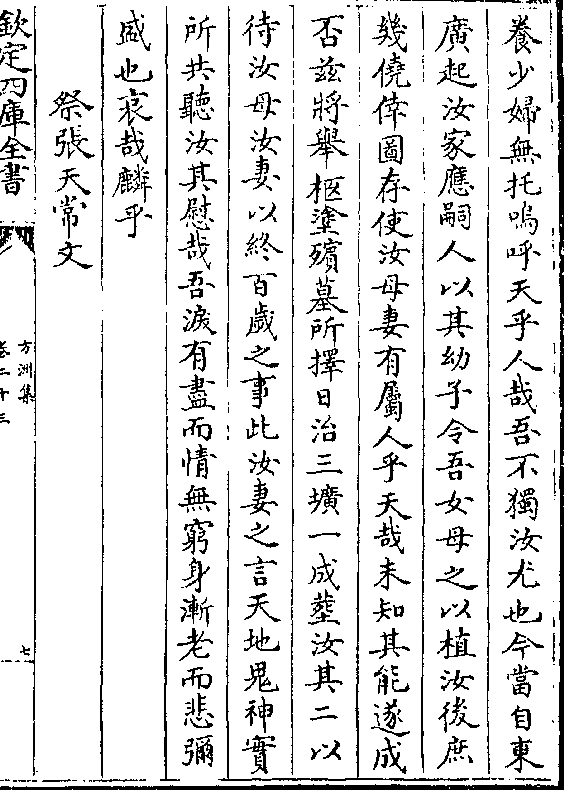 養少婦無托嗚呼天乎人哉吾不獨汝尤也今當自東
廣起汝家應嗣人以其幼子令吾女母之以植汝後庶
幾僥倖圖存使汝母妻有屬人乎天哉未知其能遂成
否兹將舉柩塗殯墓所擇日治三壙一成塟汝其二以
待汝母汝妻以終百歲之事此汝妻之言天地鬼神實
所共聽汝其慰哉吾淚有盡而情無窮身漸老而悲彌
盛也哀哉麟乎
祭張天常文
欽定四庫全書
方洲集
卷二十三
七